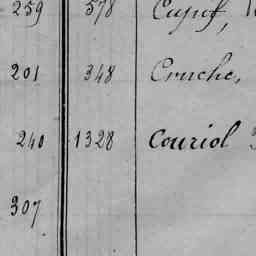 259 578
201 348 Cruche,
240 1328 Couriol
307